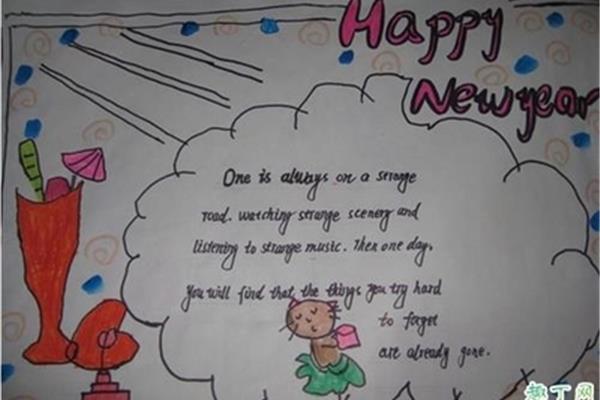 Happy
New year
One is always on a strange
road. watching strange scenery and
listening to strange music. Then one day.
You will find that the things you try hard
to forget
are already gone.
趣丁网